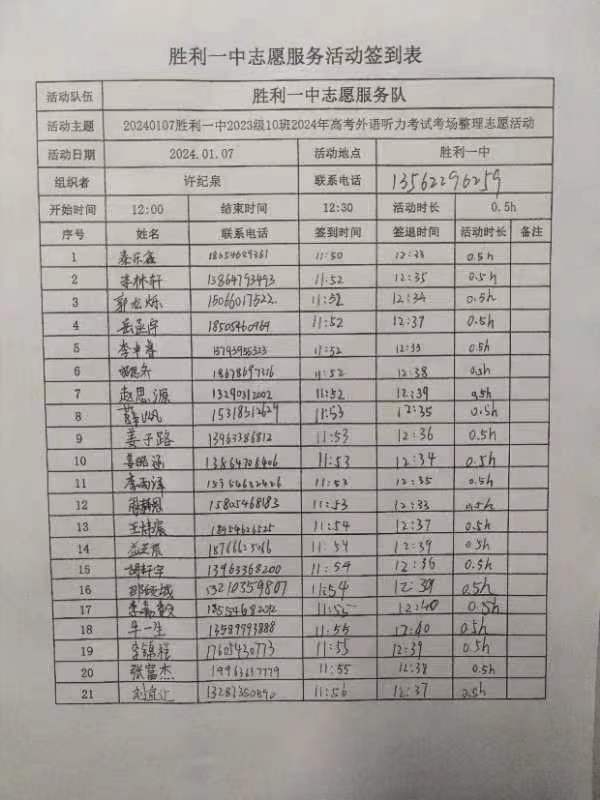 胜利一中志愿服务活动签到表
活动队伍 胜利一中志愿服务队
活动主题 20240107胜利一中2023级10班2024年高考外语听力考试考场整理志愿活动
活动日期 2024.01.07 活动地点 胜利一中
组织者 许纪泉 联系电话 13562296259
开始时间 12:00 结束时间 12:30 活动时长 0.5h
序号 姓名 联系电话 签到时间 签退时间 活动时长 备注
1 秦乐鑫 18654629361 11:50 12:33 0.5h
2 李林轩 13864793493 11:52 12:35 0.5h
3 15066017522 11:52 12:34 0.5h
4 岳孟宇 18505460969 11:52 12:37 0.5h
5 11:52 12:33 0.5h
6 18678697216 11:52 12:38 0.5h
7 赵思源 13290312002 11:52 12:39 0.5h
8 15318312624 11:53 12:35 0.5h
9 姜子路 13963386812 11:53 12:36 0.5h
10 姜皓涵 13864708406 11:53 12:34 0.5h
11 李雨泽 11:53 12:35 0.5h
12 15805468183 11:53 12:33 0.5h
13 18954626525 11:54 12:37 0.5h
14 11:54 12:39 0.5h
15 胡轩宇 13963368200 11:54 12:36 0.5h
16 13210359807 11:54 12:39 0.5h
17 18554682092 11:55 12:40 0.5h
18 牟一生 13589993888 11:55 12:40 0.5h
19 李锦程 17605430773 11:55 12:39 0.5h
20 张富杰 19963617779 11:55 12:38 0.5h
21 13281350890 11:56 12:37 0.5h